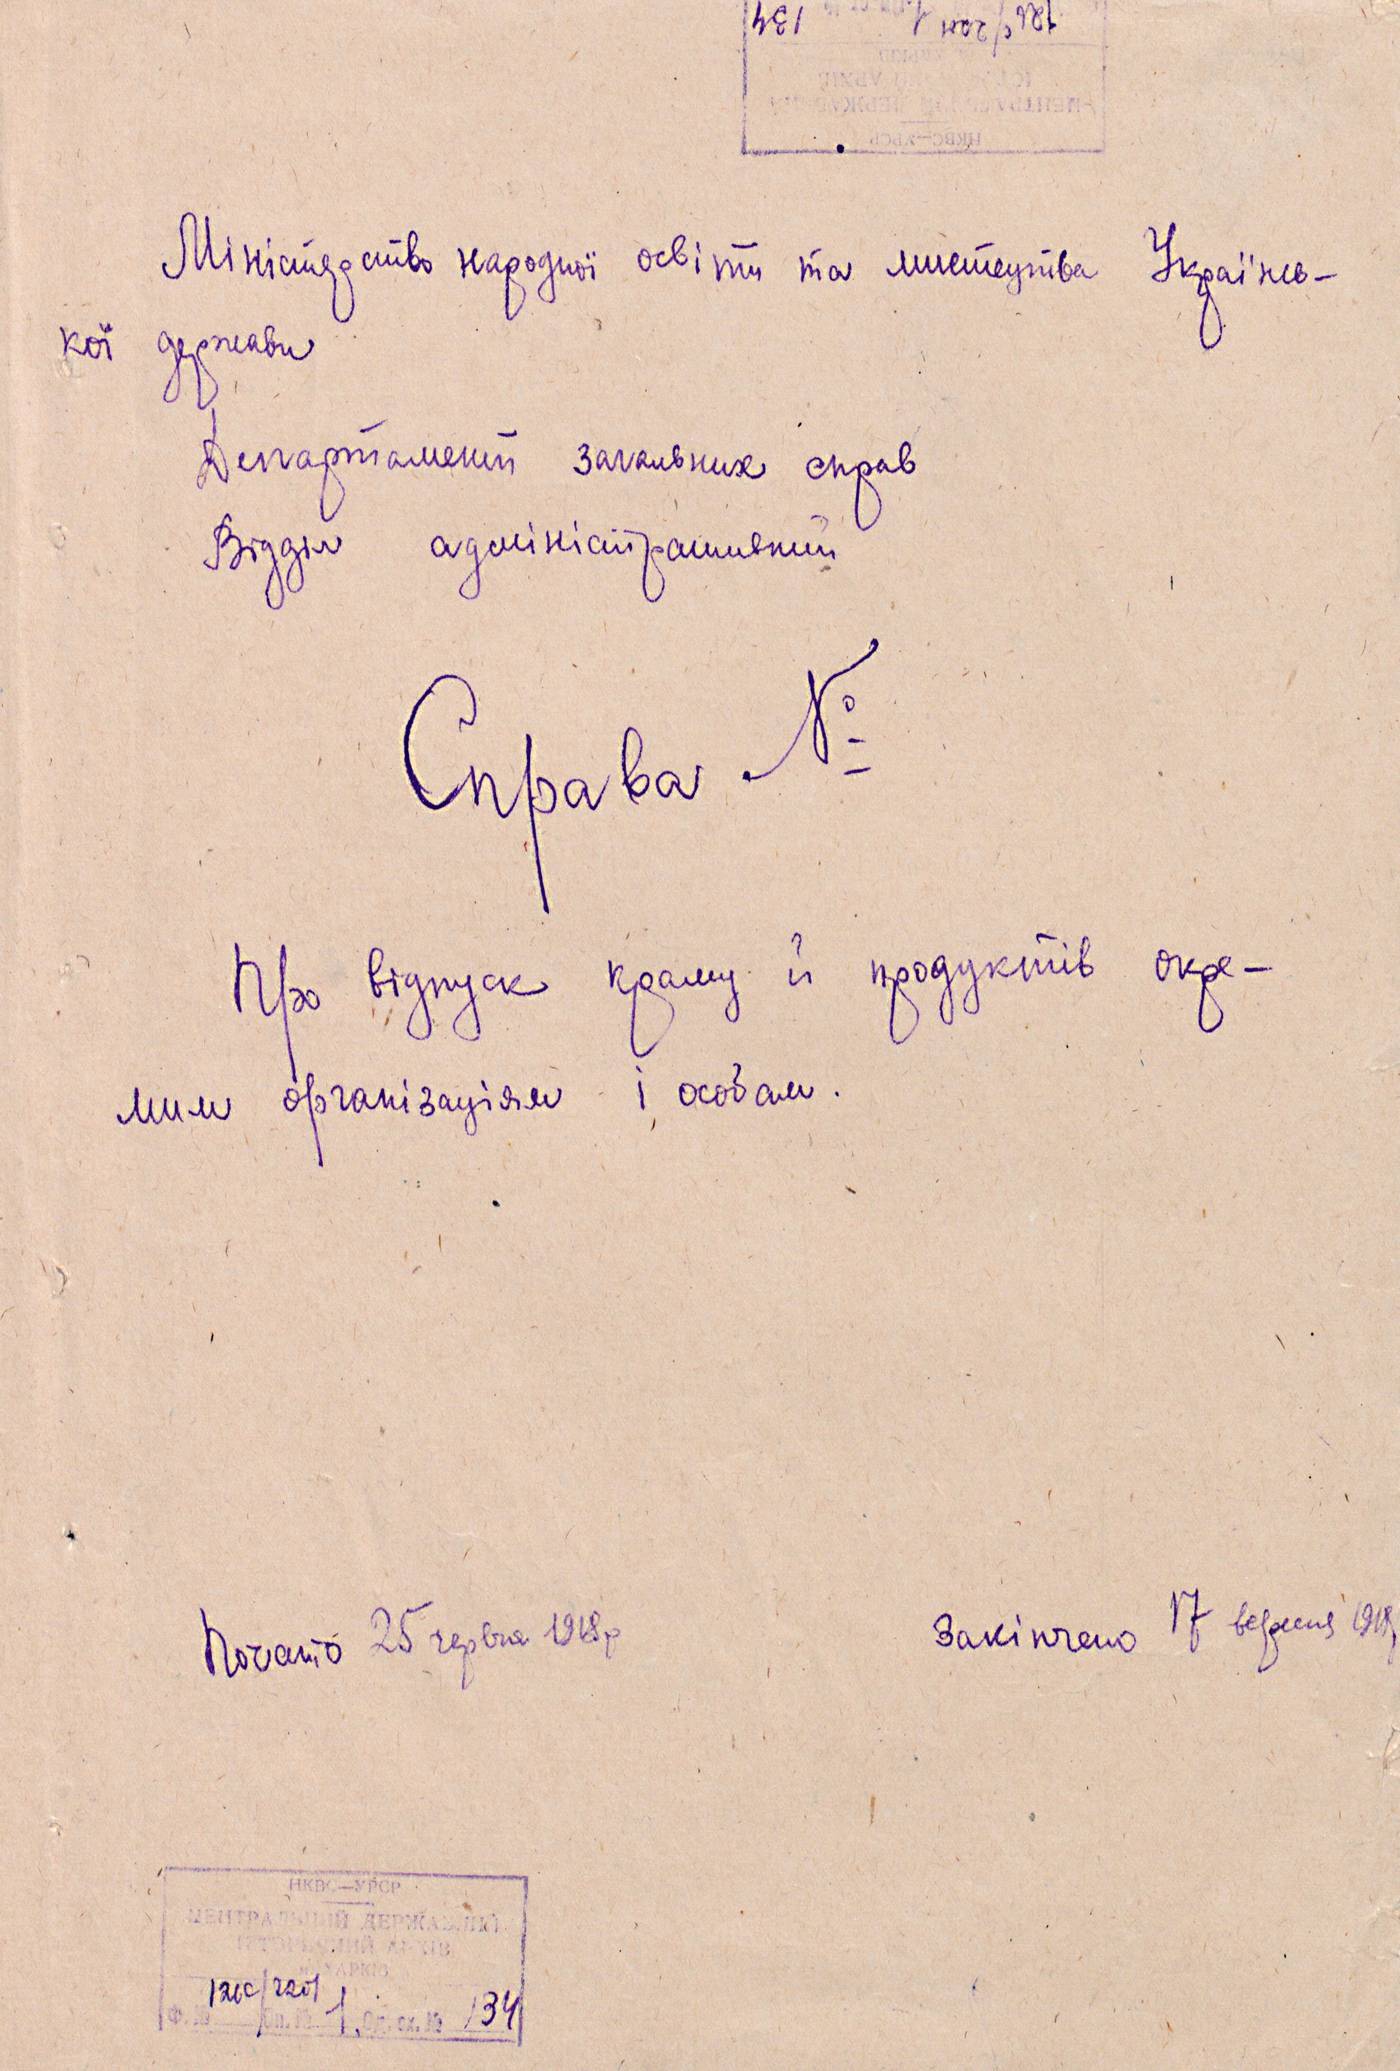 Міністерство народної освіти та мистецтва Українсь-
кої держави
Департамент загальних справ
Відділ адміністративний
Справа №
Про відпуск краму й продуктів окре-
мим організаціям і особам.
Почато 25 червня 1918р
Закінчено 17 вересня 1918р
НКВС—УРСР
ЦЕНТРАЛЬНИЙ ДЕРЖАВНИЙ
ІСТОРИЧНИЙ АРХІВ
м. ХАРКІВ
Ф. № /2201 Оп. № 1 Од. сх. № 134